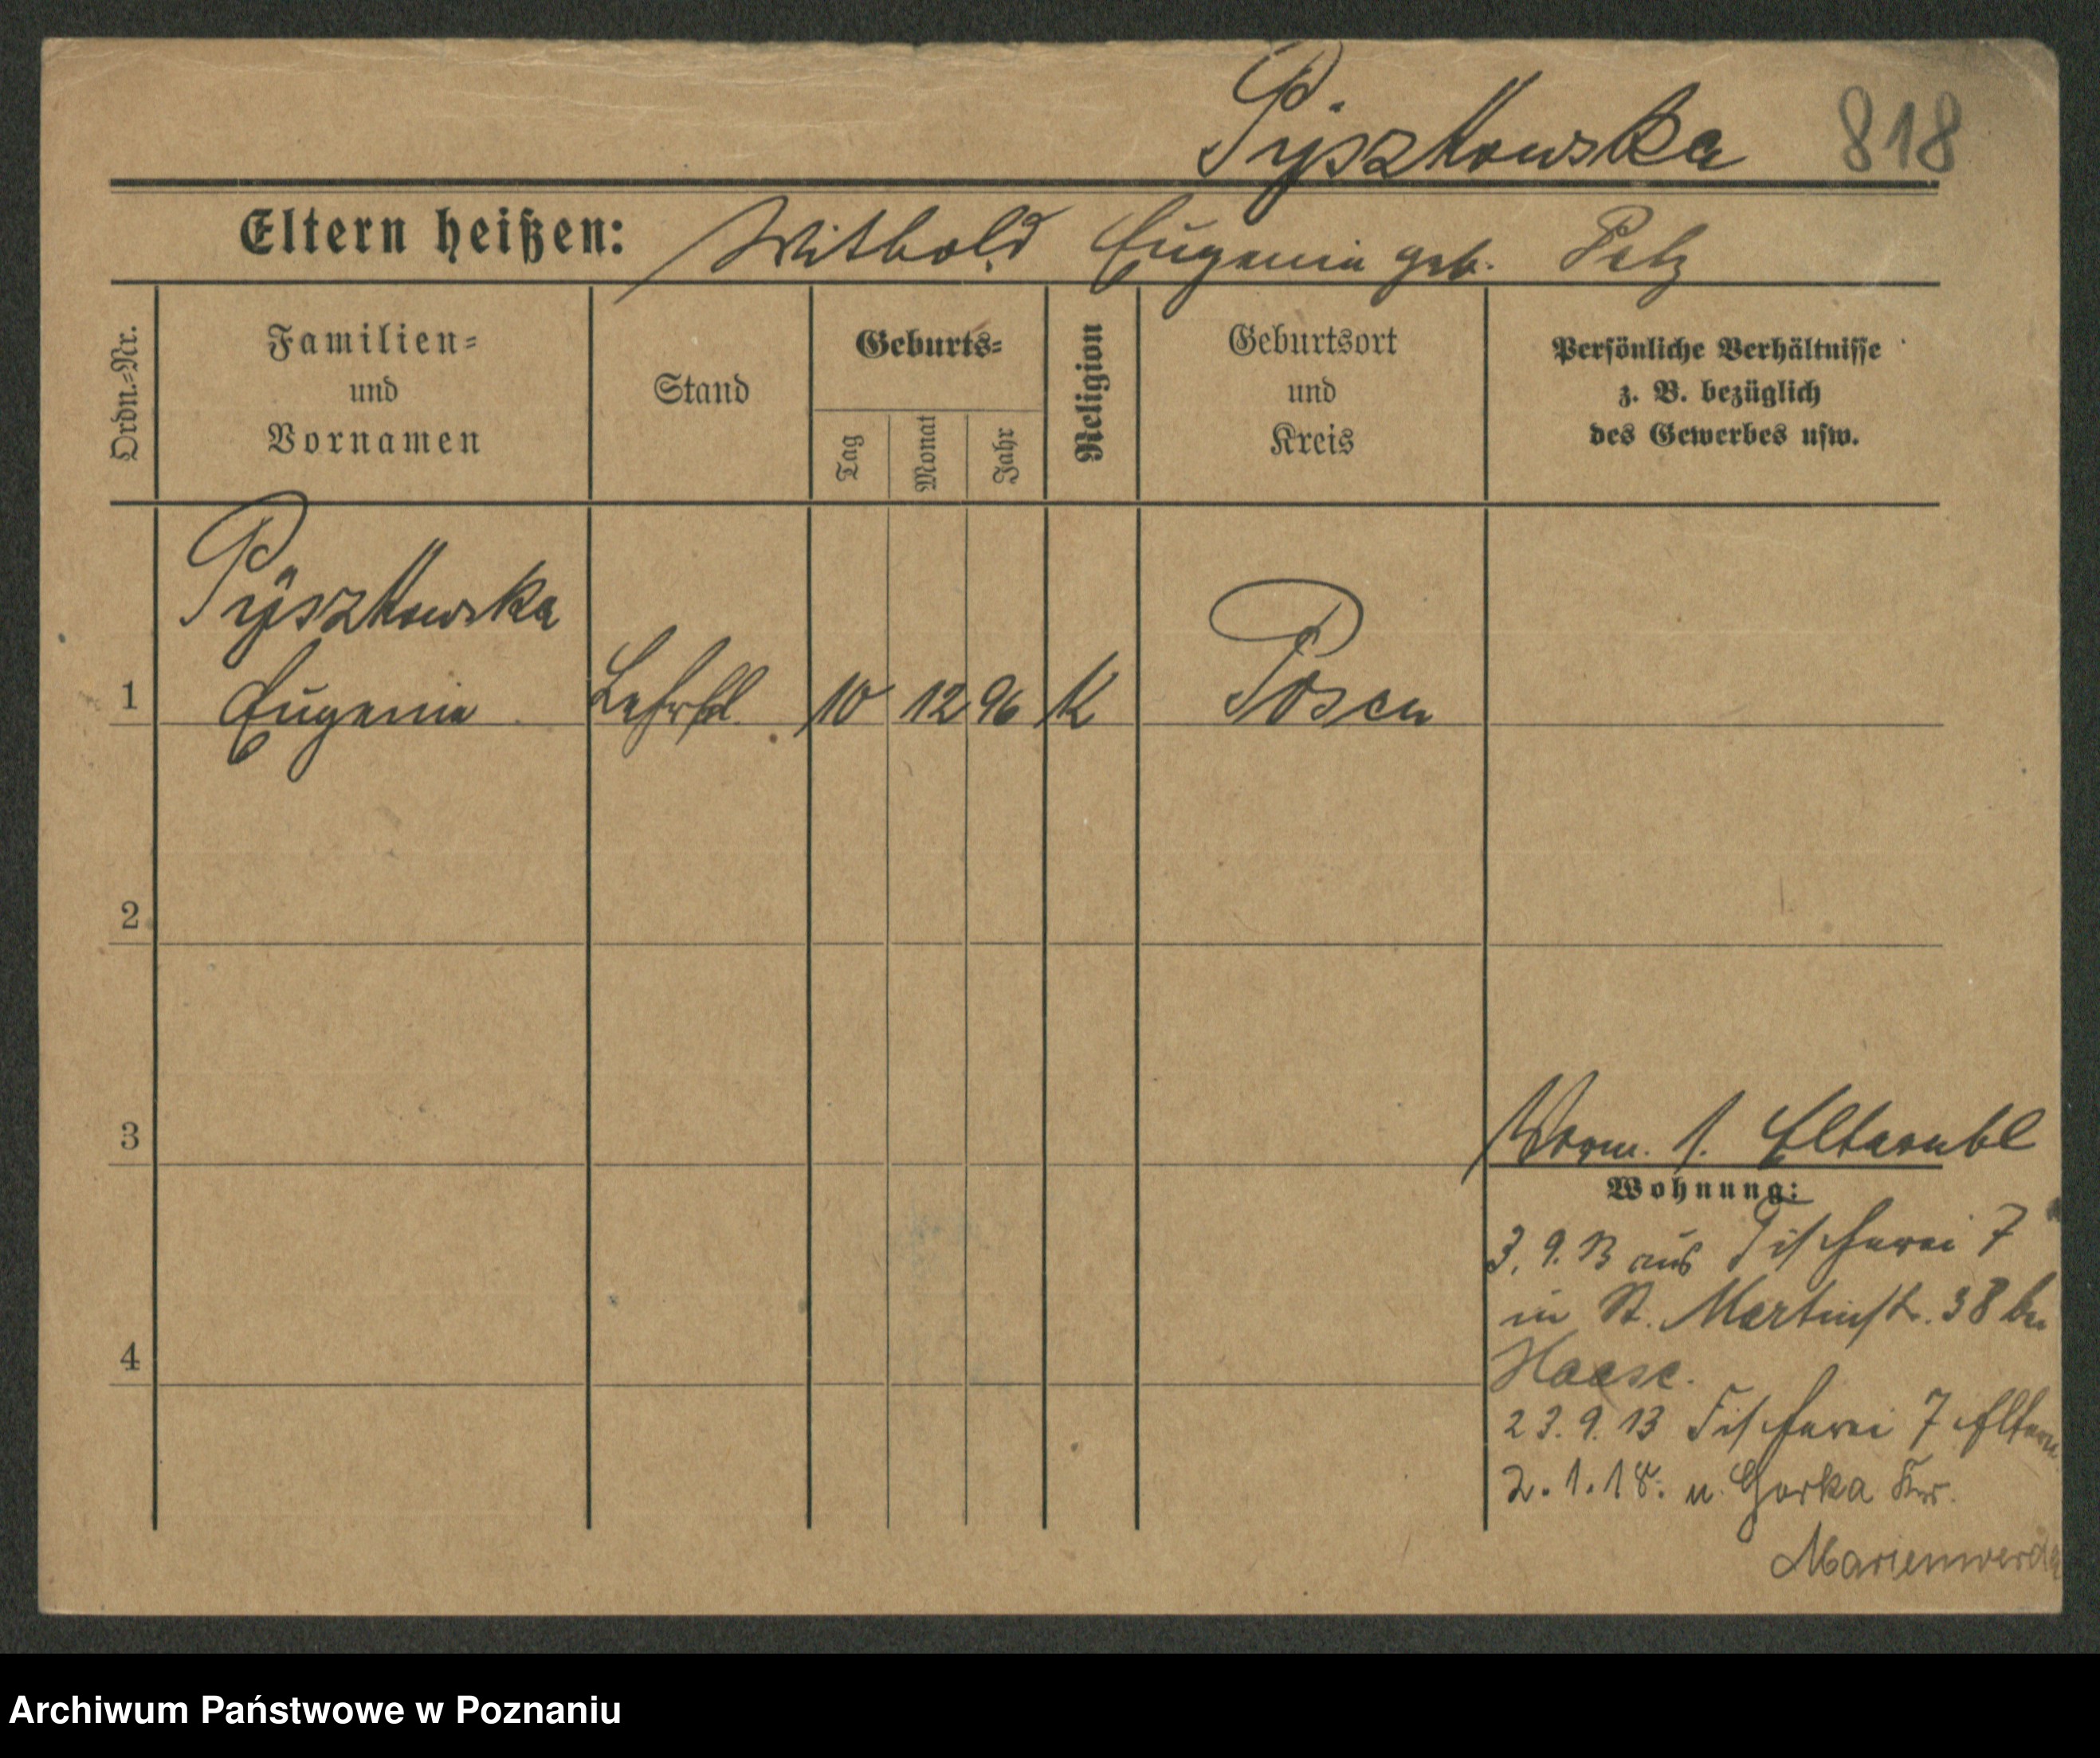 Pyszkowska 818
Eltern heißen: Withold Eugenia geb. Pelz
Ordn.=Nr.
Familien=
und
Vornamen
Stand
Geburts=
Tag
Monat
Jahr
Religion
Geburtsort
und
Kreis
Persönliche Verhältnisse
z. B. bezüglich
des Gewerbes usw.
Pyszkowska
1 Eugenia Lehrfl. 10 12 96 K Posen
2
3
4
Vorm. s. Elternbl
Wohnung:
3. 9. 13 aus Fischerei 7
in St. Martinstr. 38 bei
Haase.
23. 9. 13 Fischerei 7 Eltern
2. 1. 18. n. Gorka Krs.
Marienwerder
Archiwum Państwowe w Poznaniu